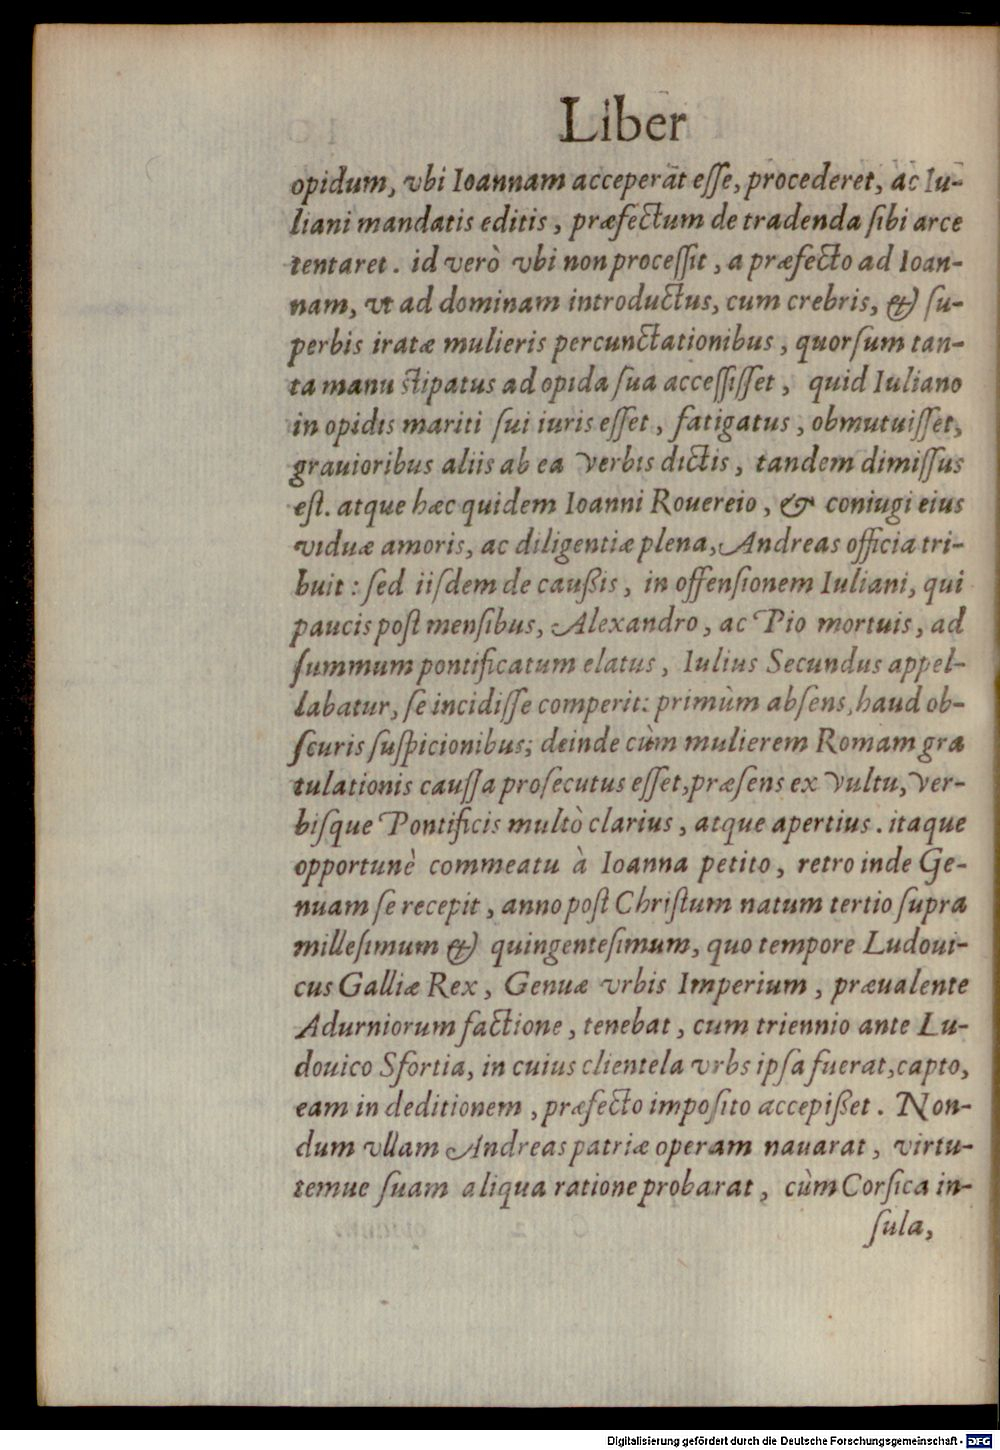 Liber
opidum, vbi Ioannam acceperāt esse, procederet, ac Iu-
liani mandatis editis, præfectum de tradenda sibi arce
tentaret. id verò vbi non processit, a præfecto ad Ioan-
nam, vt ad dominam introductus, cum crebris, & su-
perbis iratæ mulieris percunctationibus, quorsum tan-
ta manu stipatus ad opida sua accessisset, quid Iuliano
in opidis mariti sui iuris esset, fatigatus, obmutuisset,
grauioribus aliis ab ea verbis dictis, tandem dimissus
est. atque hæc quidem Ioanni Rouereio, & coniugi eius
viduæ amoris, ac diligentiæ plena, Andreas officia tri-
buit: sed iisdem de caußis, in offensionem Iuliani, qui
paucis post mensibus, Alexandro, ac Pio mortuis, ad
summum pontificatum elatus, Iulius Secundus appel-
labatur, se incidisse comperit: primùm absens, haud ob-
scuris suspicionibus; deinde cùm mulierem Romam gra
tulationis caussa prosecutus esset, præsens ex vultu, ver-
bisque Pontificis multò clarius, atque apertius. itaque
opportunè commeatu à Ioanna petito, retro inde Ge-
nuam se recepit, anno post Christum natum tertio supra
millesimum & quingentesimum, quo tempore Ludoui-
cus Galliæ Rex, Genuæ vrbis Imperium, præualente
Adurniorum factione, tenebat, cum triennio ante Lu-
douico Sfortia, in cuius clientela vrbs ipsa fuerat, capto,
eam in deditionem, præfecto imposito accepißet. Non-
dum vllam Andreas patriæ operam nauarat, virtu-
temue suam aliqua ratione probarat, cùm Corsica in-
sula,
Digitalisierung gefördert durch die Deutsche Forschungsgemeinschaft - DFG